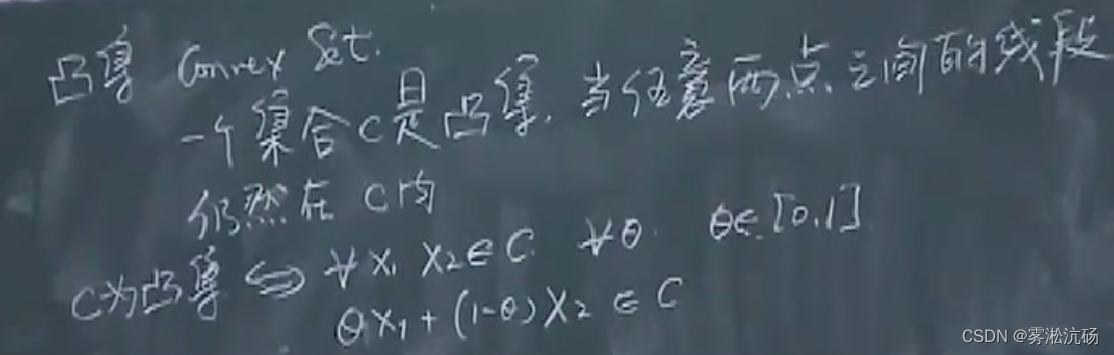 凸集 Convex Set.
一个集合C是凸集,当任意两点之间的线段
仍然在C内
C为凸集⇔∀x₁ x₂∈C ∀θ θ∈[0,1]
θx₁+(1-θ)x₂∈C
CSDN @雾淞沆砀